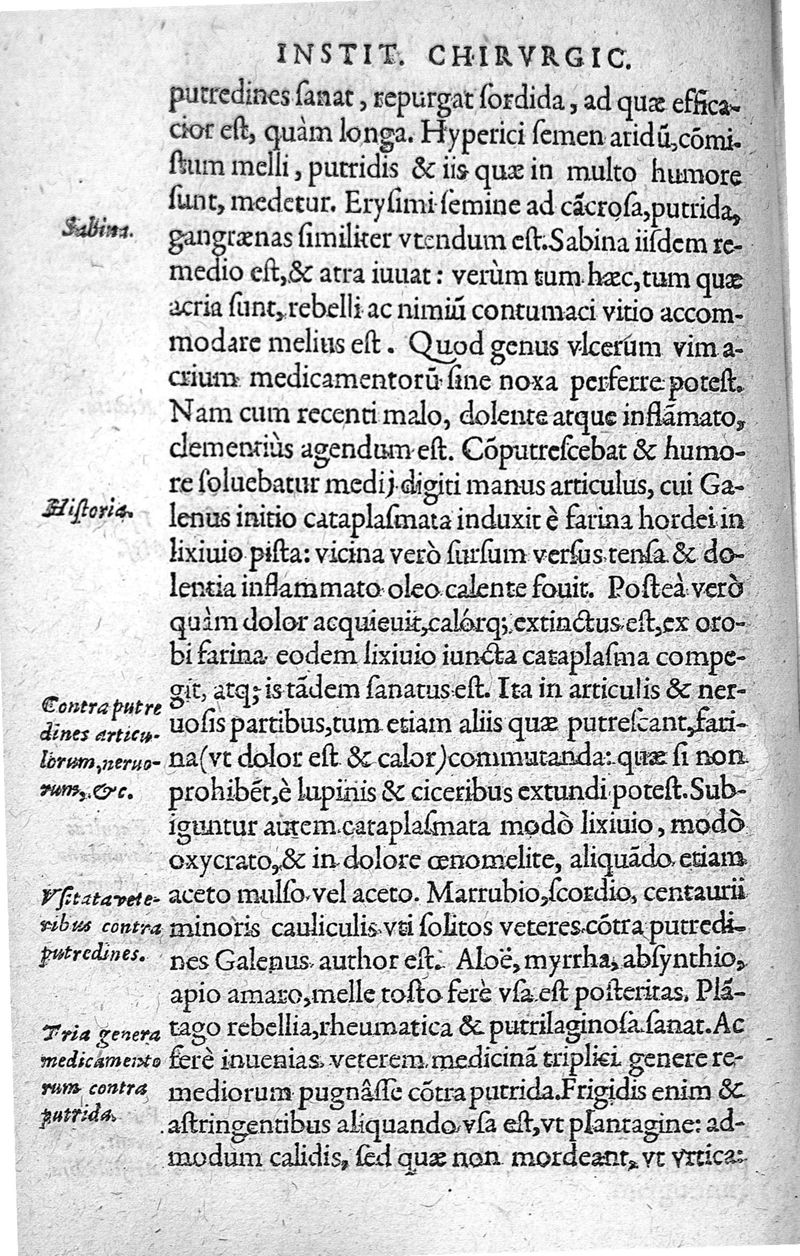 INSTIT. CHIRVRGIC.
putredines ſanat, repurgat ſordida, ad quæ effica-
cior eſt, quàm longa. Hyperici ſemen aridū, cōmi-
ſtum melli, putridis & iis quæ in multo humore
ſunt, medetur. Eryſimi ſemine ad cācroſa, putrida,
Sabina.
gangrænas ſimiliter vtendum eſt. Sabina iiſdem re-
medio eſt, & atra iuuat: verùm tum hæc, tum quæ
acria ſunt, rebelli ac nimiū contumaci vitio accom-
modare melius eſt. Quod genus vlcerum vim a-
crium medicamentorū ſine noxa perferre poteſt.
Nam cum recenti malo, dolente atque inflāmato,
clementiùs agendum eſt. Cōputreſcebat & humo-
re ſoluebatur medij digiti manus articulus, cui Ga-
Hiſtoria.
lenus initio cataplaſmata induxit è farina hordei in
lixiuio piſta: vicina verò ſurſum verſus tenſa & do-
lentia inflammato oleo calente fouit. Poſteà verò
quàm dolor acquieuit, calórq; extinctus eſt, ex oro-
bi farina eodem lixiuio iuncta cataplaſma compe-
git, atq; is tādem ſanatus eſt. Ita in articulis & ner-
Contra putre
dines articu-
lorum, neruo-
rum, &c.
uoſis partibus, tum etiam aliis quæ putreſcant, fari-
na (vt dolor eſt & calor) commutanda: quæ ſi non
prohibēt, è lupinis & ciceribus extundi poteſt. Sub-
iguntur autem cataplaſmata modò lixiuio, modò
oxycrato, & in dolore œnomelite, aliquādo etiam
Vſitata vete-
ribus contra
putredines.
aceto mulſo vel aceto. Marrubio, ſcordio, centaurii
minoris cauliculis vti ſolitos veteres cōtra putredi-
nes Galenus author eſt. Aloë, myrrha, abſynthio,
apio amaro, melle toſto ferè vſa eſt poſteritas. Plā-
Tria genera
medicamento
rum contra
putrida.
tago rebellia, rheumatica & putrilaginoſa ſanat. Ac
ferè inuenias veterem medicinā triplici genere re-
mediorum pugnâſſe cōtra putrida. Frigidis enim &
aſtringentibus aliquando vſa eſt, vt plantagine: ad-
modum calidis, ſed quæ non mordeant, vt vrtica: